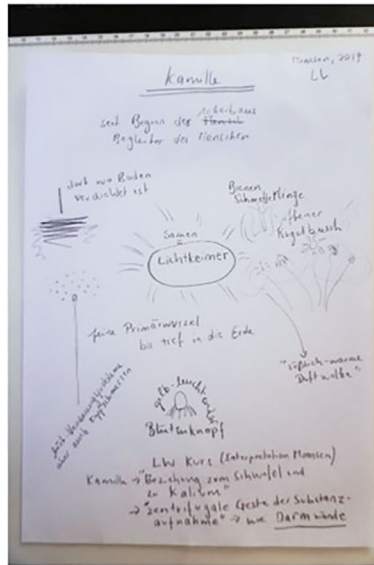 Monsson, 2019
LV
Kamille
seit Beginn des Ackerbaus
Begleiter des Menschen
dort wo Boden
verdichtet ist
Bienen
Schmetterlinge
offener
Kugelbusch
Samen
Lichtkeimer
feine Primärwurzel
bis tief in die Erde
"süßlich-warme
Duftwolke"
gelb-leuchtender
Blütenknopf
LW Kurs (Interpretation Momsen)
Kamille → "Beziehung zum Schwefel und
zu Kalium"
→ "zentrifugale Geste der Substanz-
aufnahme" → wie Darmwände